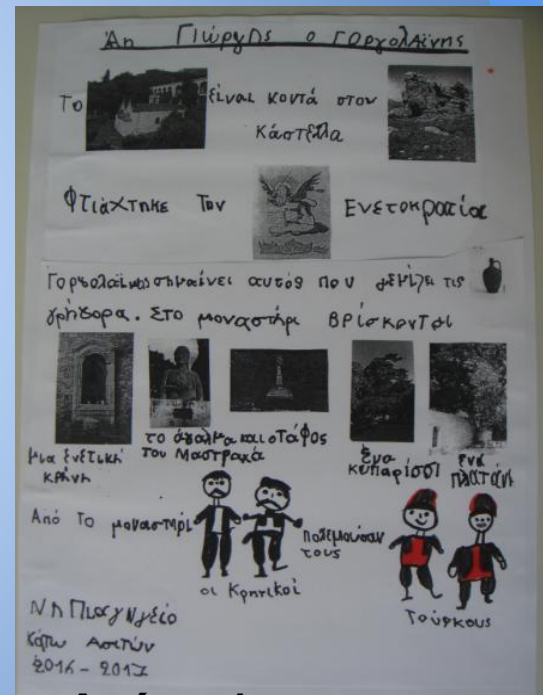 Αη Γιώργης ο Γοργολαΐνης
Το είναι κοντά στον
Κάστελλα
Φτιάχτηκε Την Ενετοκρατία
Γοργολαϊνης σημαίνει αυτός που γεμίζει τις
γρήγορα. Στο μοναστήρι βρίσκονται
μια ενετική
κρήνη
το άγαλμα και ο τάφος
του Μαστραχά
ένα
κυπαρίσσι
ένα
πλατάνι
Από το μοναστήρι πολεμούσαν
τους
οι Κρητικοί
Τούρκους
Νηπιαγωγείο
Κάτω Ασιτών
2016-2017